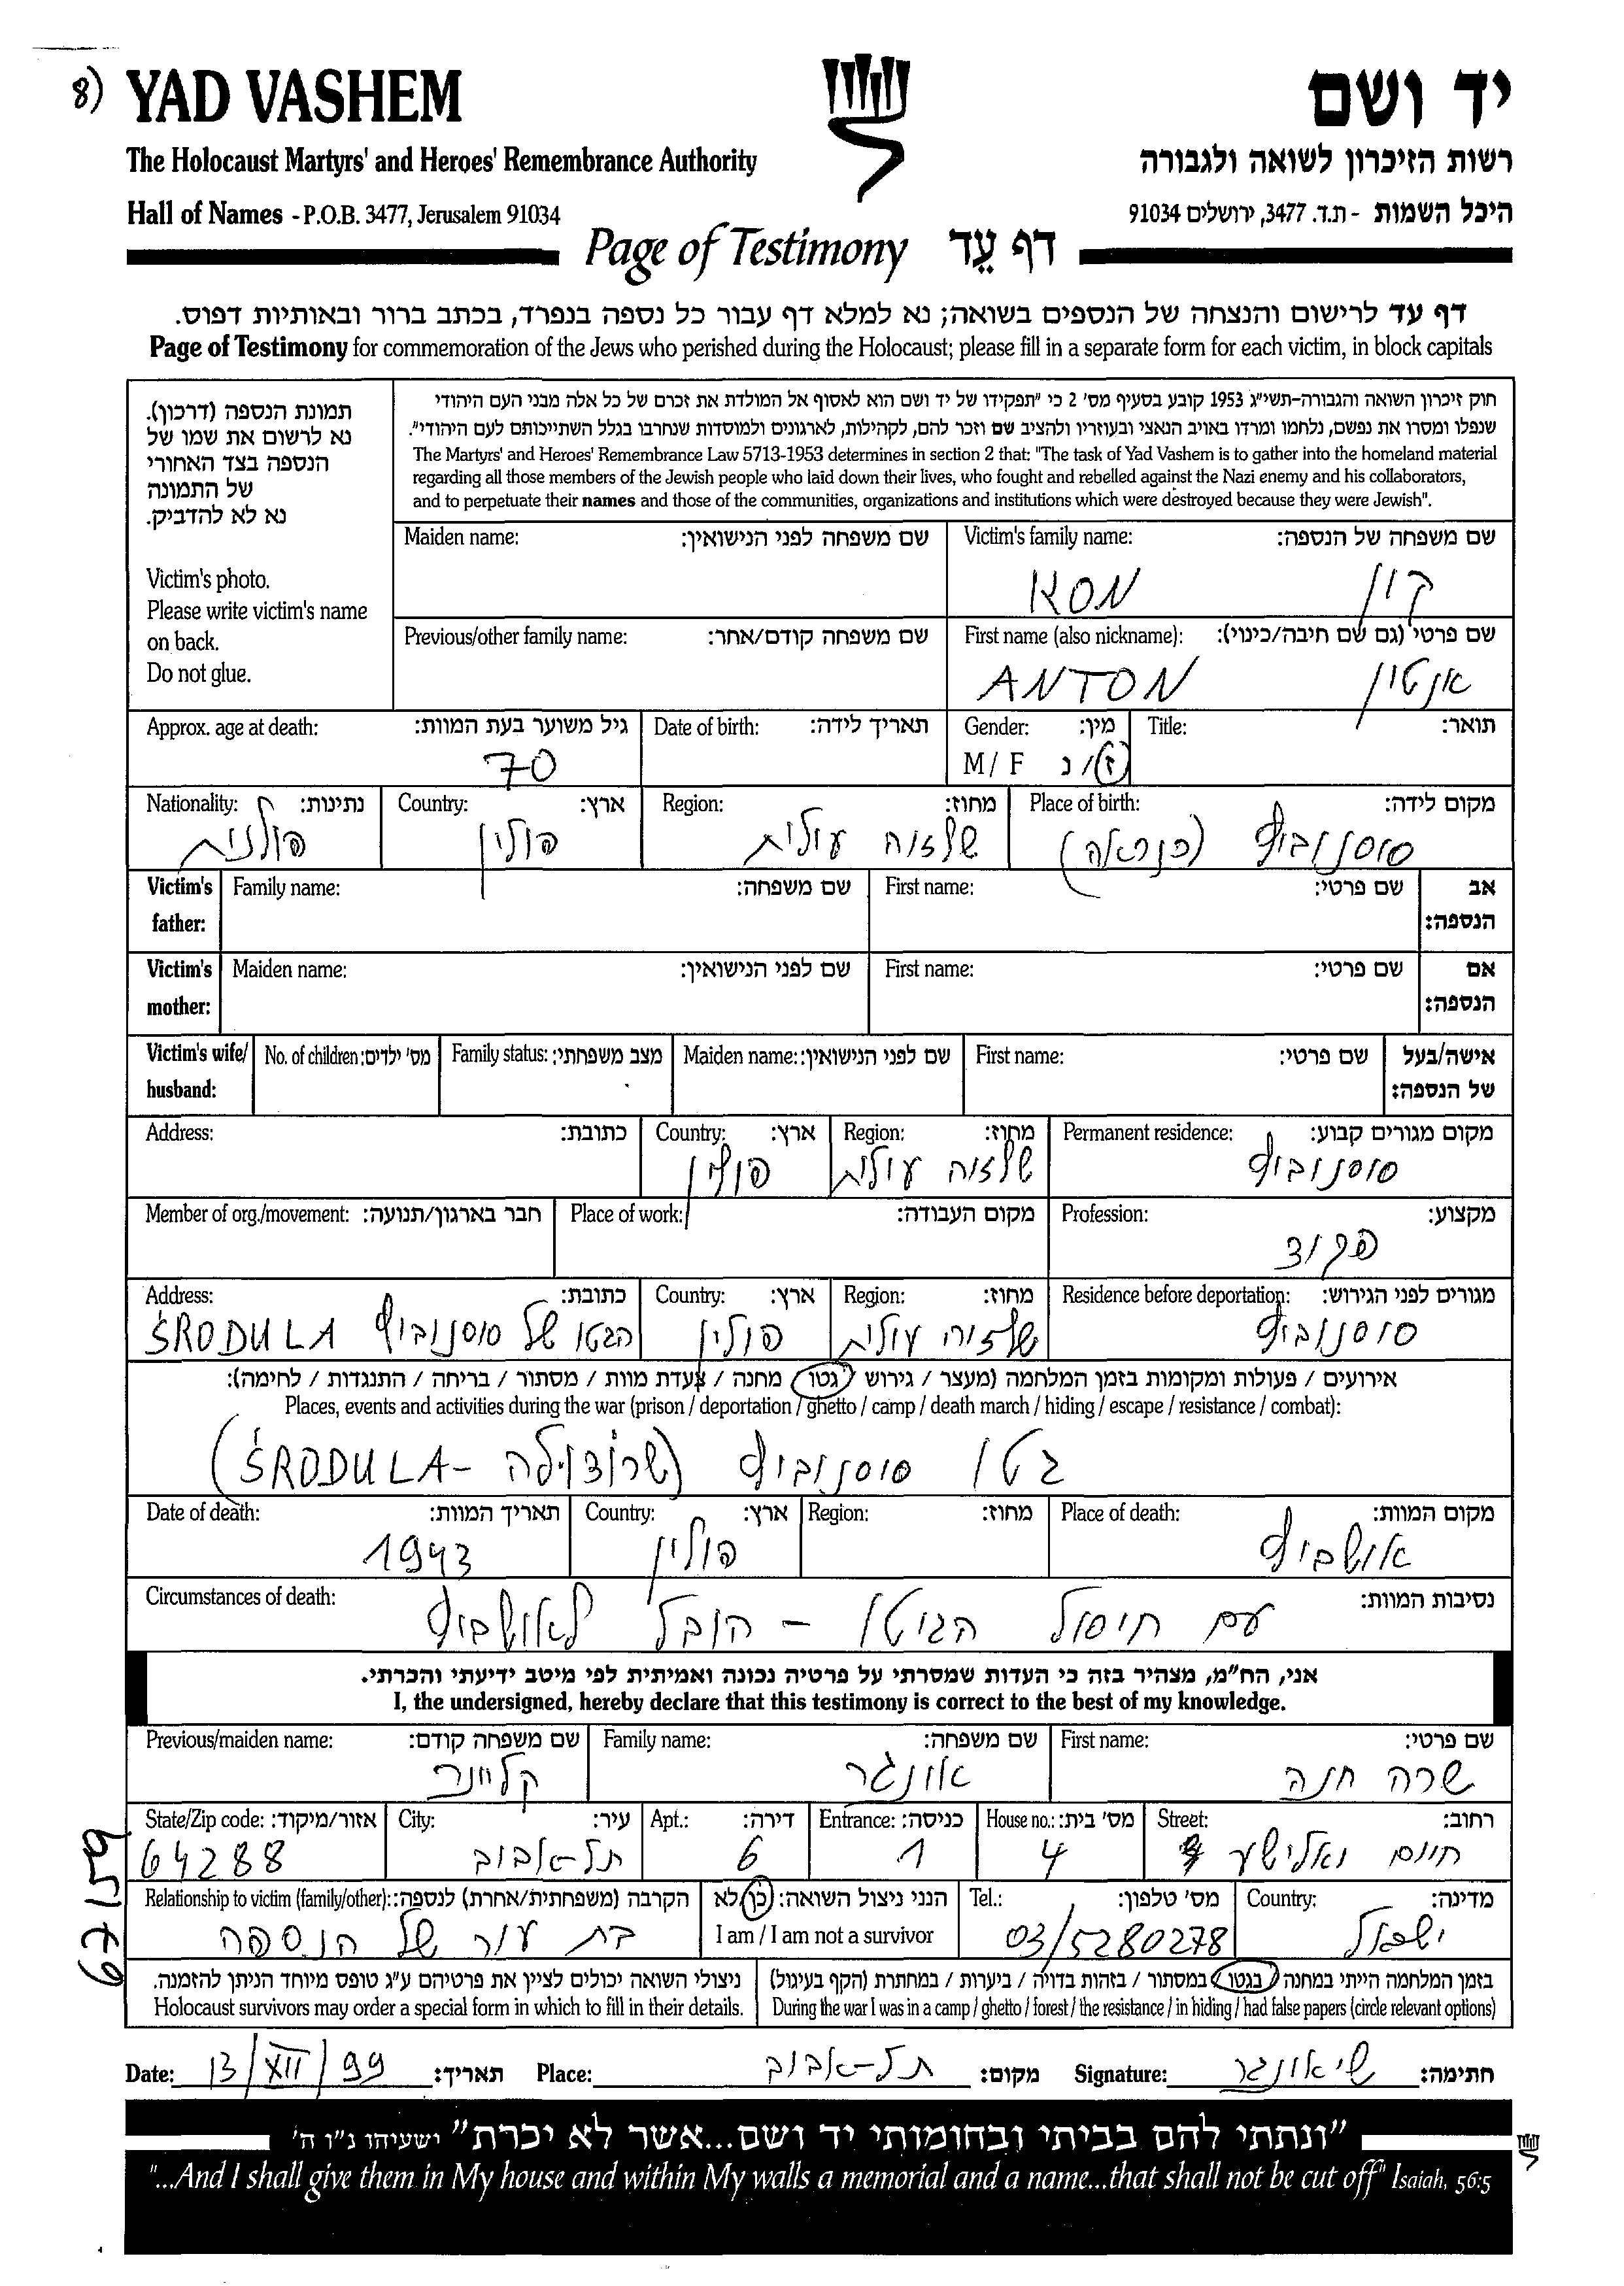 8) YAD VASHEM יד ושם
The Holocaust Martyrs' and Heroes' Remembrance Authority רשות הזיכרון לשואה ולגבורה
Hall of Names - P.O.B. 3477, Jerusalem 91034 היכל השמות - ת.ד. 3477, ירושלים 91034
Page of Testimony דף עֵד
דף עד לרישום והנצחה של הנספים בשואה; נא למלא דף עבור כל נספה בנפרד, בכתב ברור ובאותיות דפוס.
Page of Testimony for commemoration of the Jews who perished during the Holocaust; please fill in a separate form for each victim, in block capitals
תמונת הנספה (דרכון).
נא לרשום את שמו של
הנספה בצד האחורי
של התמונה
נא לא להדביק.
Victim's photo.
Please write victim's name
on back.
Do not glue.
חוק זיכרון השואה והגבורה-תשי"ג 1953 קובע בסעיף מס' 2 כי "תפקידו של יד ושם הוא לאסוף אל המולדת את זכרם של כל אלה מבני העם היהודי
שנפלו ומסרו את נפשם, נלחמו ומרדו באויב הנאצי ובעוזריו ולהציב שם וזכר להם, לקהילות, לארגונים ולמוסדות שנחרבו בגלל השתייכותם לעם היהודי".
The Martyrs' and Heroes' Remembrance Law 5713-1953 determines in section 2 that: "The task of Yad Vashem is to gather into the homeland material
regarding all those members of the Jewish people who laid down their lives, who fought and rebelled against the Nazi enemy and his collaborators,
and to perpetuate their names and those of the communities, organizations and institutions which were destroyed because they were Jewish".
Maiden name: שם משפחה לפני הנישואין: Victim's family name: שם משפחה של הנספה:
KON קון
Previous/other family name: שם משפחה קודם/אחר: First name (also nickname): שם פרטי (גם שם חיבה/כינוי):
ANTON אנטון
Approx. age at death: גיל משוער בעת המוות: Date of birth: תאריך לידה: Gender: מין: Title: תואר:
70 M / F ז/נ
Nationality: נתינות: Country: ארץ: Region: מחוז: Place of birth: מקום לידה:
פולנית פולין שלזיה עילית סוסנוביץ (כנראה)
Victim's father: Family name: שם משפחה: First name: שם פרטי: אב הנספה:
Victim's mother: Maiden name: שם לפני הנישואין: First name: שם פרטי: אם הנספה:
Victim's wife/ husband: No. of children: מס' ילדים: Family status: מצב משפחתי: Maiden name: שם לפני הנישואין: First name: שם פרטי: אישה/בעל של הנספה:
Address: כתובת: Country: ארץ: Region: מחוז: Permanent residence: מקום מגורים קבוע:
פולין שלזיה עילית סוסנוביץ
Member of org./movement: חבר בארגון/תנועה: Place of work: מקום העבודה: Profession: מקצוע:
פקיד
Address: כתובת: Country: ארץ: Region: מחוז: Residence before deportation: מגורים לפני הגירוש:
הגטו של סוסנוביץ ŚRODULA פולין שלזיה עילית סוסנוביץ
אירועים / פעולות ומקומות בזמן המלחמה (מעצר / גירוש / גטו / מחנה / צעדת מוות / מסתור / בריחה / התנגדות / לחימה):
Places, events and activities during the war (prison / deportation / ghetto / camp / death march / hiding / escape / resistance / combat):
גטו סוסנוביץ (שרודולה - ŚRODULA)
Date of death: תאריך המוות: Country: ארץ: Region: מחוז: Place of death: מקום המוות:
1943 פולין אושביץ
Circumstances of death: נסיבות המוות:
עם חיסול הגיטו - הובל לאושביץ
אני, הח"מ, מצהיר בזה כי העדות שמסרתי על פרטיה נכונה ואמיתית לפי מיטב ידיעתי והכרתי.
I, the undersigned, hereby declare that this testimony is correct to the best of my knowledge.
Previous/maiden name: שם משפחה קודם: Family name: שם משפחה: First name: שם פרטי:
קליינר אונגר שרה חנה
State/Zip code: אזור/מיקוד: City: עיר: Apt.: דירה: Entrance: כניסה: House no.: מס' בית: Street: רחוב:
64288 תל-אביב 6 1 4 חיים ואלישע
Relationship to victim (family/other): הקרבה (משפחתית/אחרת) לנספה: הנני ניצול השואה: כן/לא Tel.: מס' טלפון: Country: מדינה:
בת עיר של הנספה I am / I am not a survivor 03/5280278 ישראל
ניצולי השואה יכולים לציין את פרטיהם ע"ג טופס מיוחד הניתן להזמנה. בזמן המלחמה הייתי במחנה / בגטו / במסתור / בזהות בדויה / ביערות / במחתרת (הקף בעיגול)
Holocaust survivors may order a special form in which to fill in their details. During the war I was in a camp / ghetto / forest / the resistance / in hiding / had false papers (circle relevant options)
Date: 13/XII/99 תאריך: Place: תל-אביב מקום: Signature: ש. אונגר חתימה:
"ונתתי להם בביתי ובחומותי יד ושם...אשר לא יכרת" ישעיהו נ"ו ה'
"...And I shall give them in My house and within My walls a memorial and a name...that shall not be cut off" Isaiah, 56:5